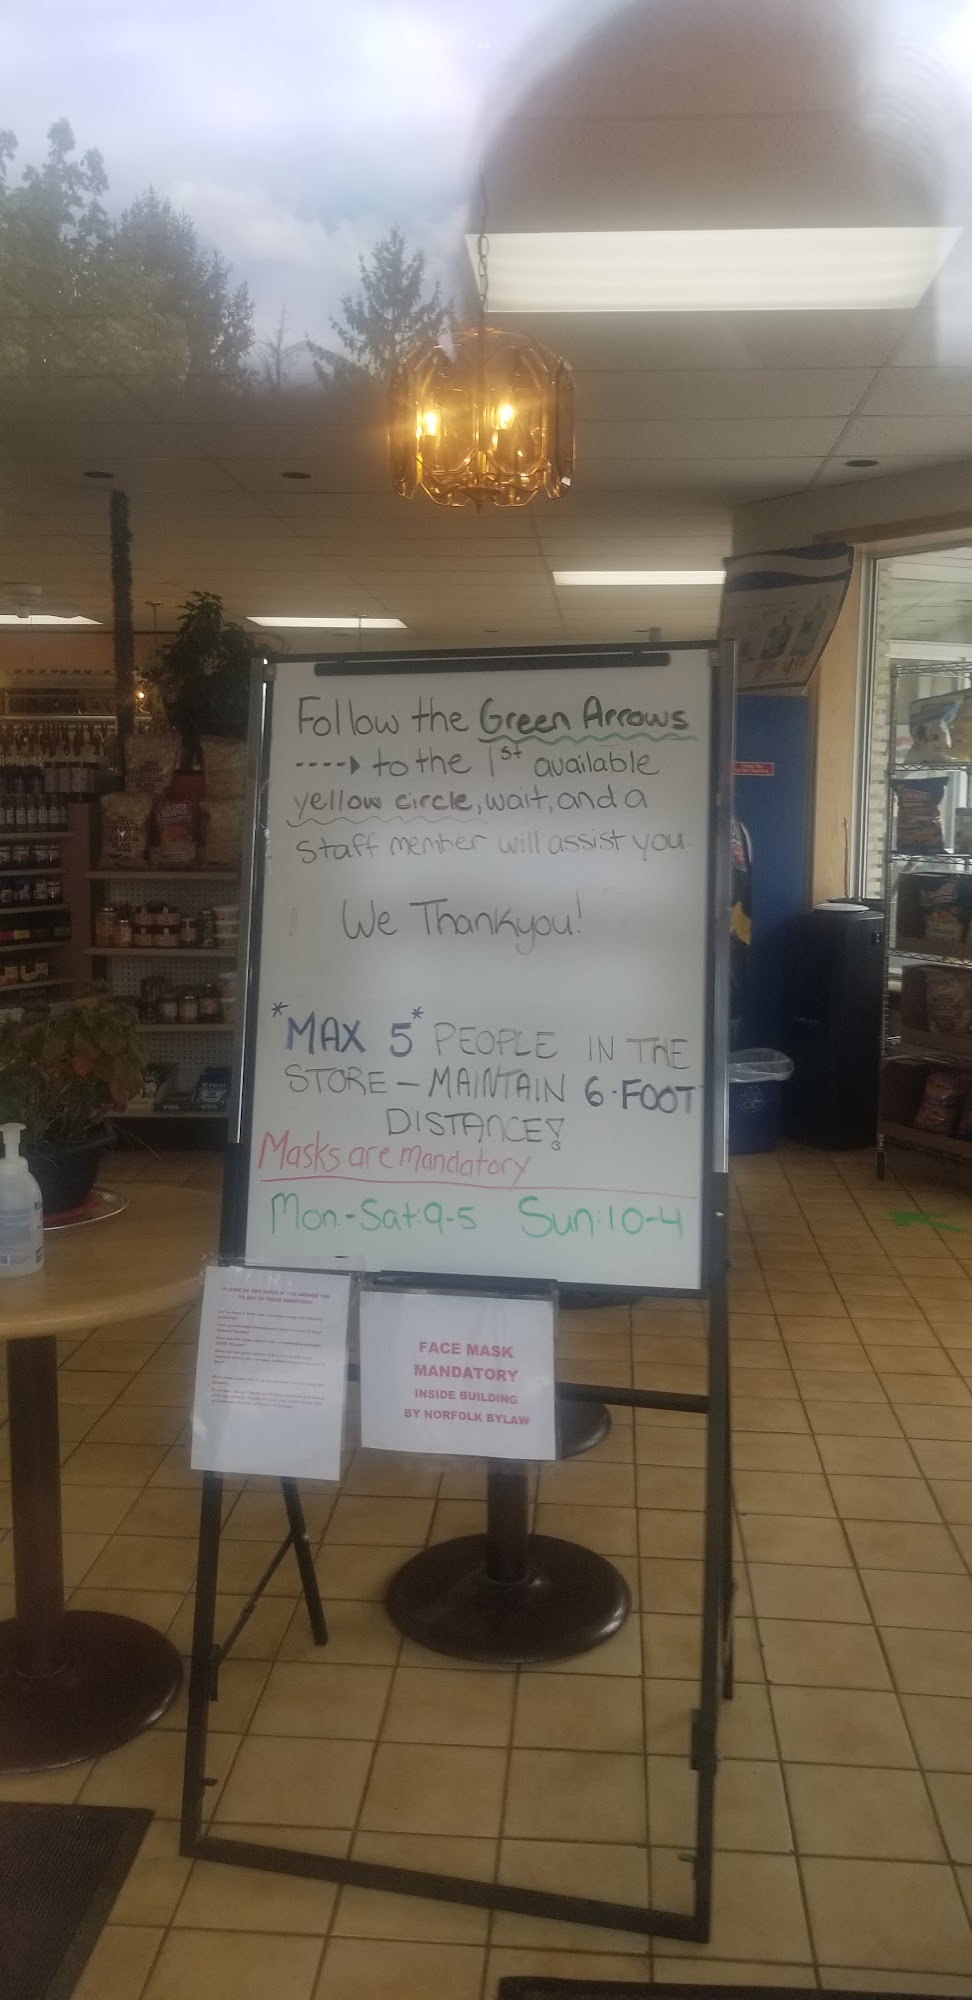 Follow the Green Arrows
----> to the 1st available
yellow circle, wait, and a
staff member will assist you
We Thankyou!
*MAX 5* PEOPLE IN THE
STORE – MAINTAIN 6-FOOT
DISTANCE!
Masks are mandatory
Mon.-Sat:9-5 Sun:10-4
PLEASE DO NOT ENTER IF YOU ANSWER YES
TO ANY OF THESE QUESTIONS:
FACE MASK
MANDATORY
INSIDE BUILDING
BY NORFOLK BYLAW